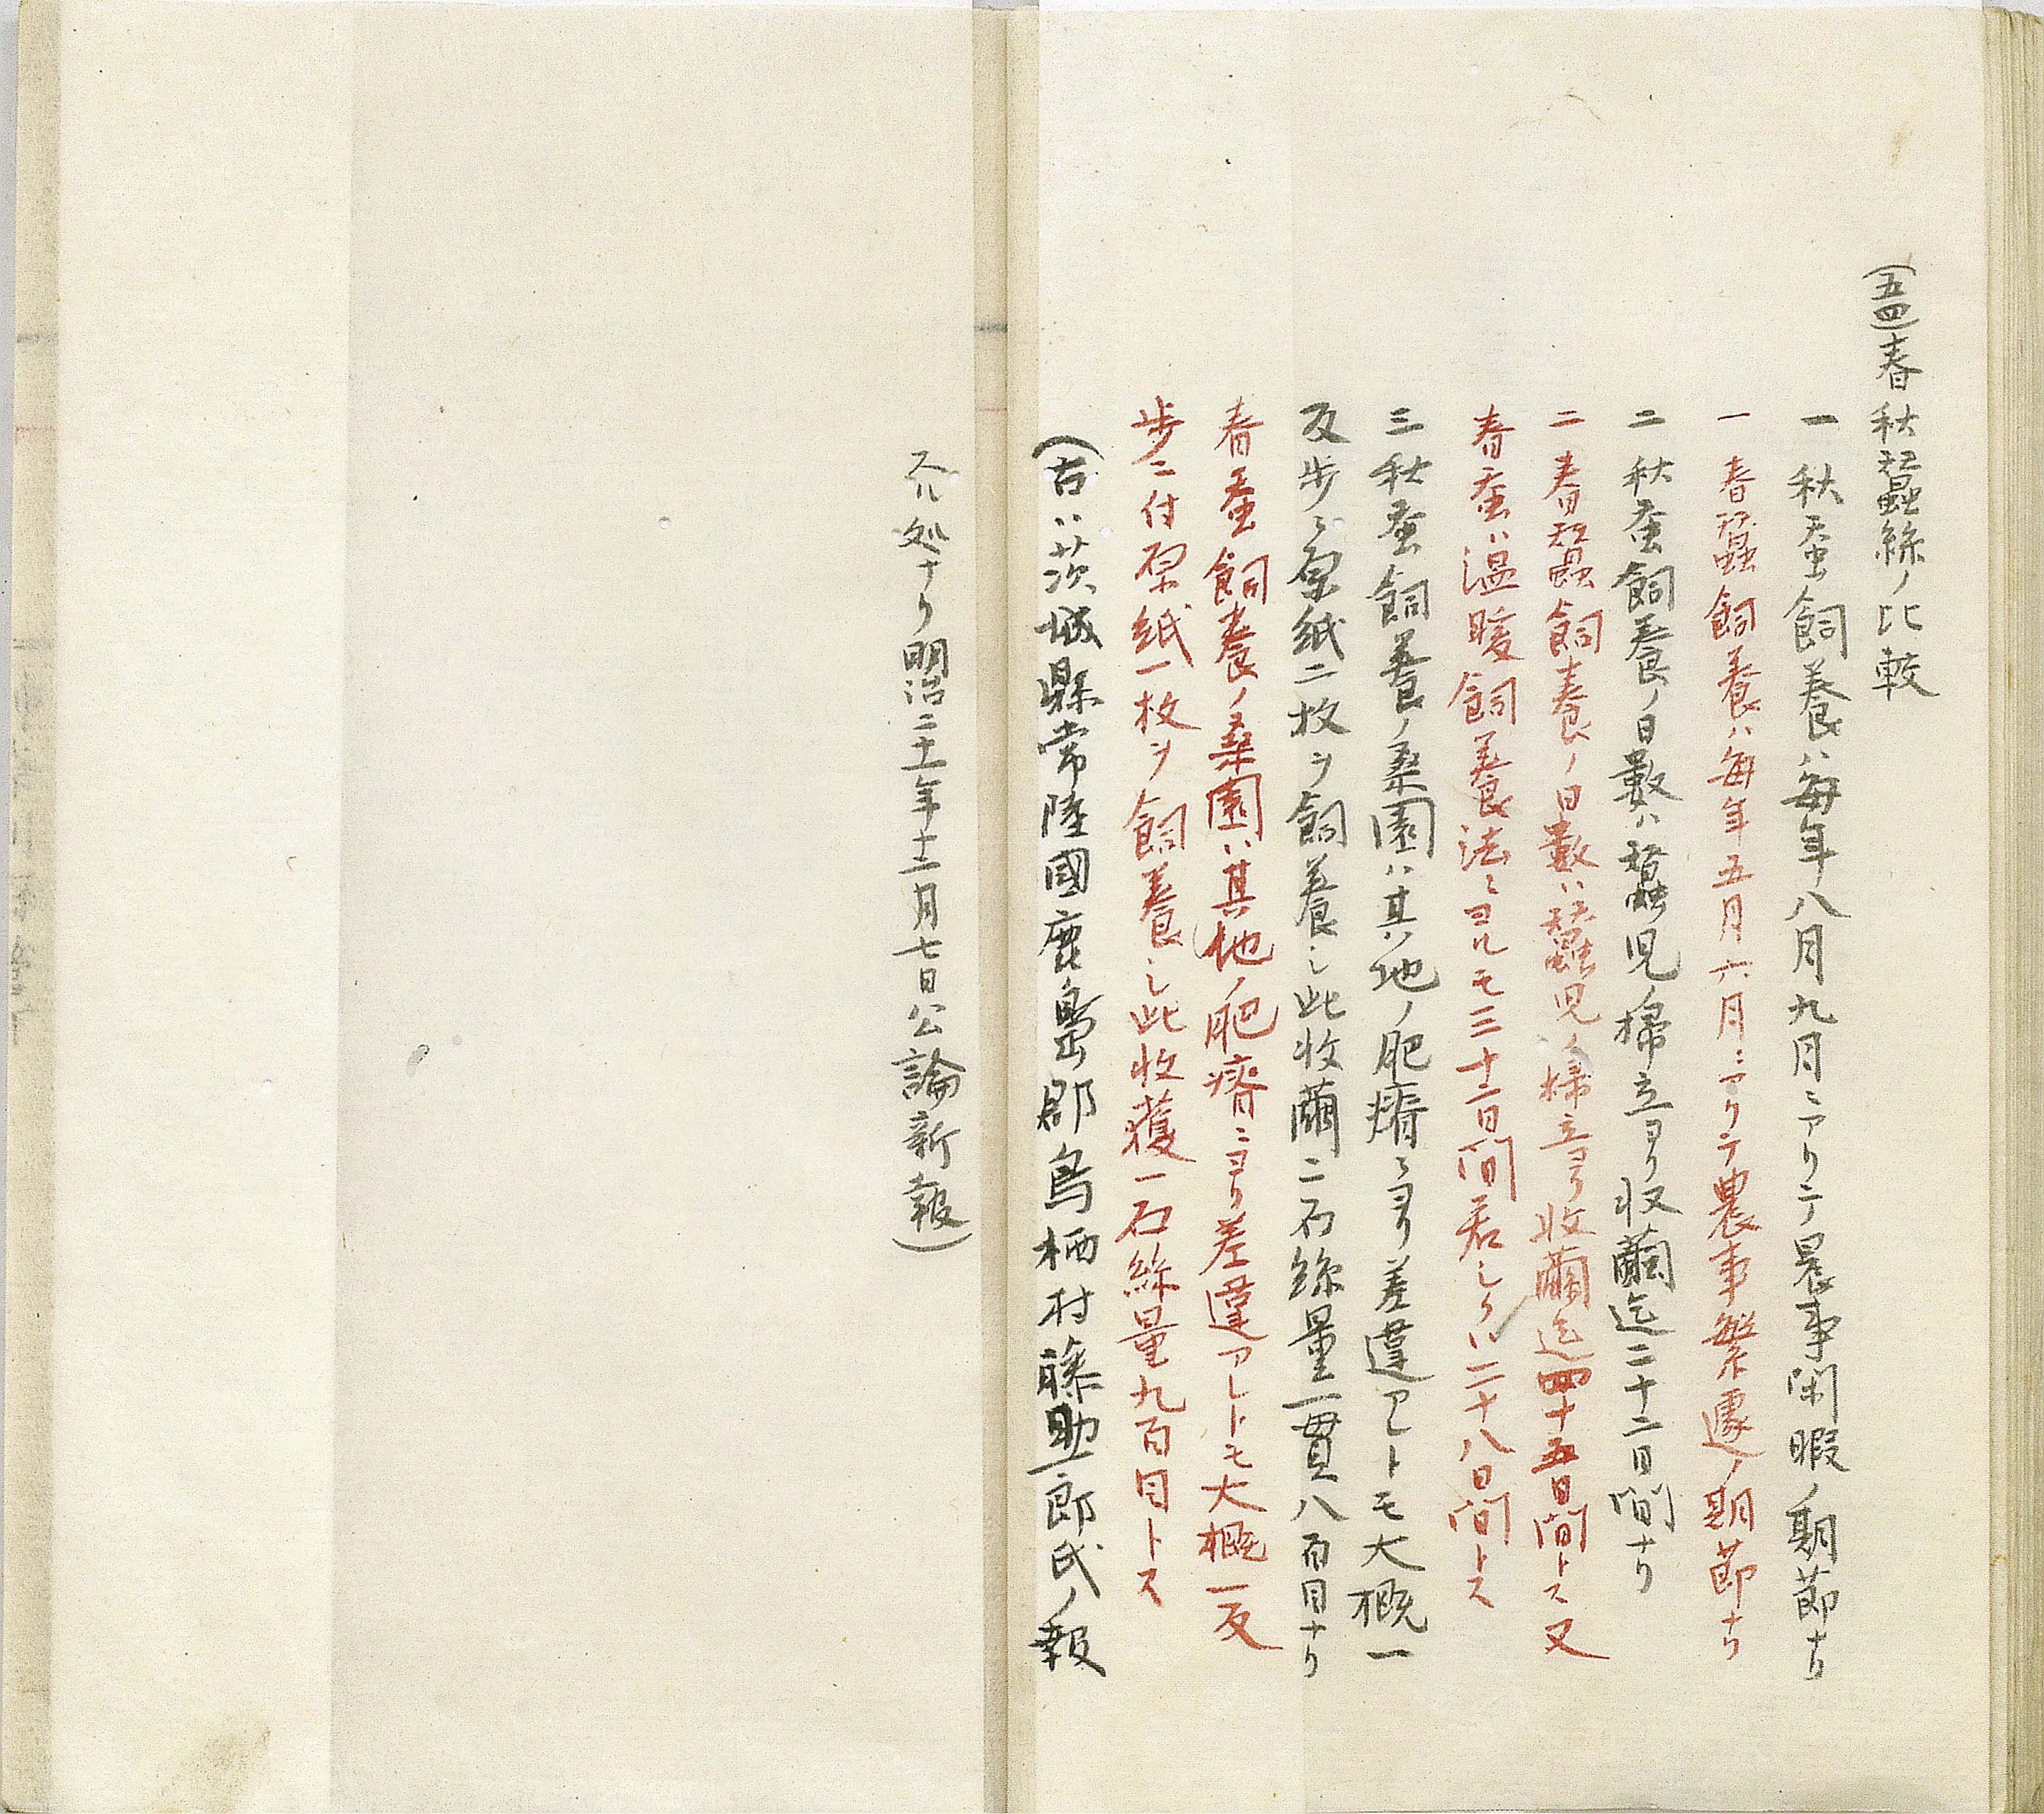 (五四)春秋蠶絲ノ比較
一 秋蚕飼養ハ毎年八月九月ニアリテ農事閑暇ノ期節ナリ
一 春蠶飼養ハ毎年五月六月ニアリテ農事繁遽ノ期節ナリ
二 秋蚕飼養ノ日數ハ蠶児掃立ヨリ収繭迄二十二日間ナリ
二 春蠶飼養ノ日數ハ蠶児ノ掃立ヨリ收繭迄四十五日間トス又
春蚕ハ温暖飼養法ニヨルモ三十二日間若シクハ二十八日間トス
三 秋蚕飼養ノ桑園ハ其地ノ肥瘠ニヨリ差違アレトモ大概一
反歩ニ原紙二枚ヲ飼養シ此收繭二石絲量一貫八百目ナリ
春蚕飼養ノ桑園ハ其地ノ肥瘠ニヨリ差違アレトモ大概一反
歩ニ付原紙一枚ヲ飼養シ此收獲一石絲量九百目トス
(右ハ茨城縣常陸國鹿島郡鳥栖村藤助一郎氏ノ報
スル処ナリ明治二十一年十二月七日公論新報)